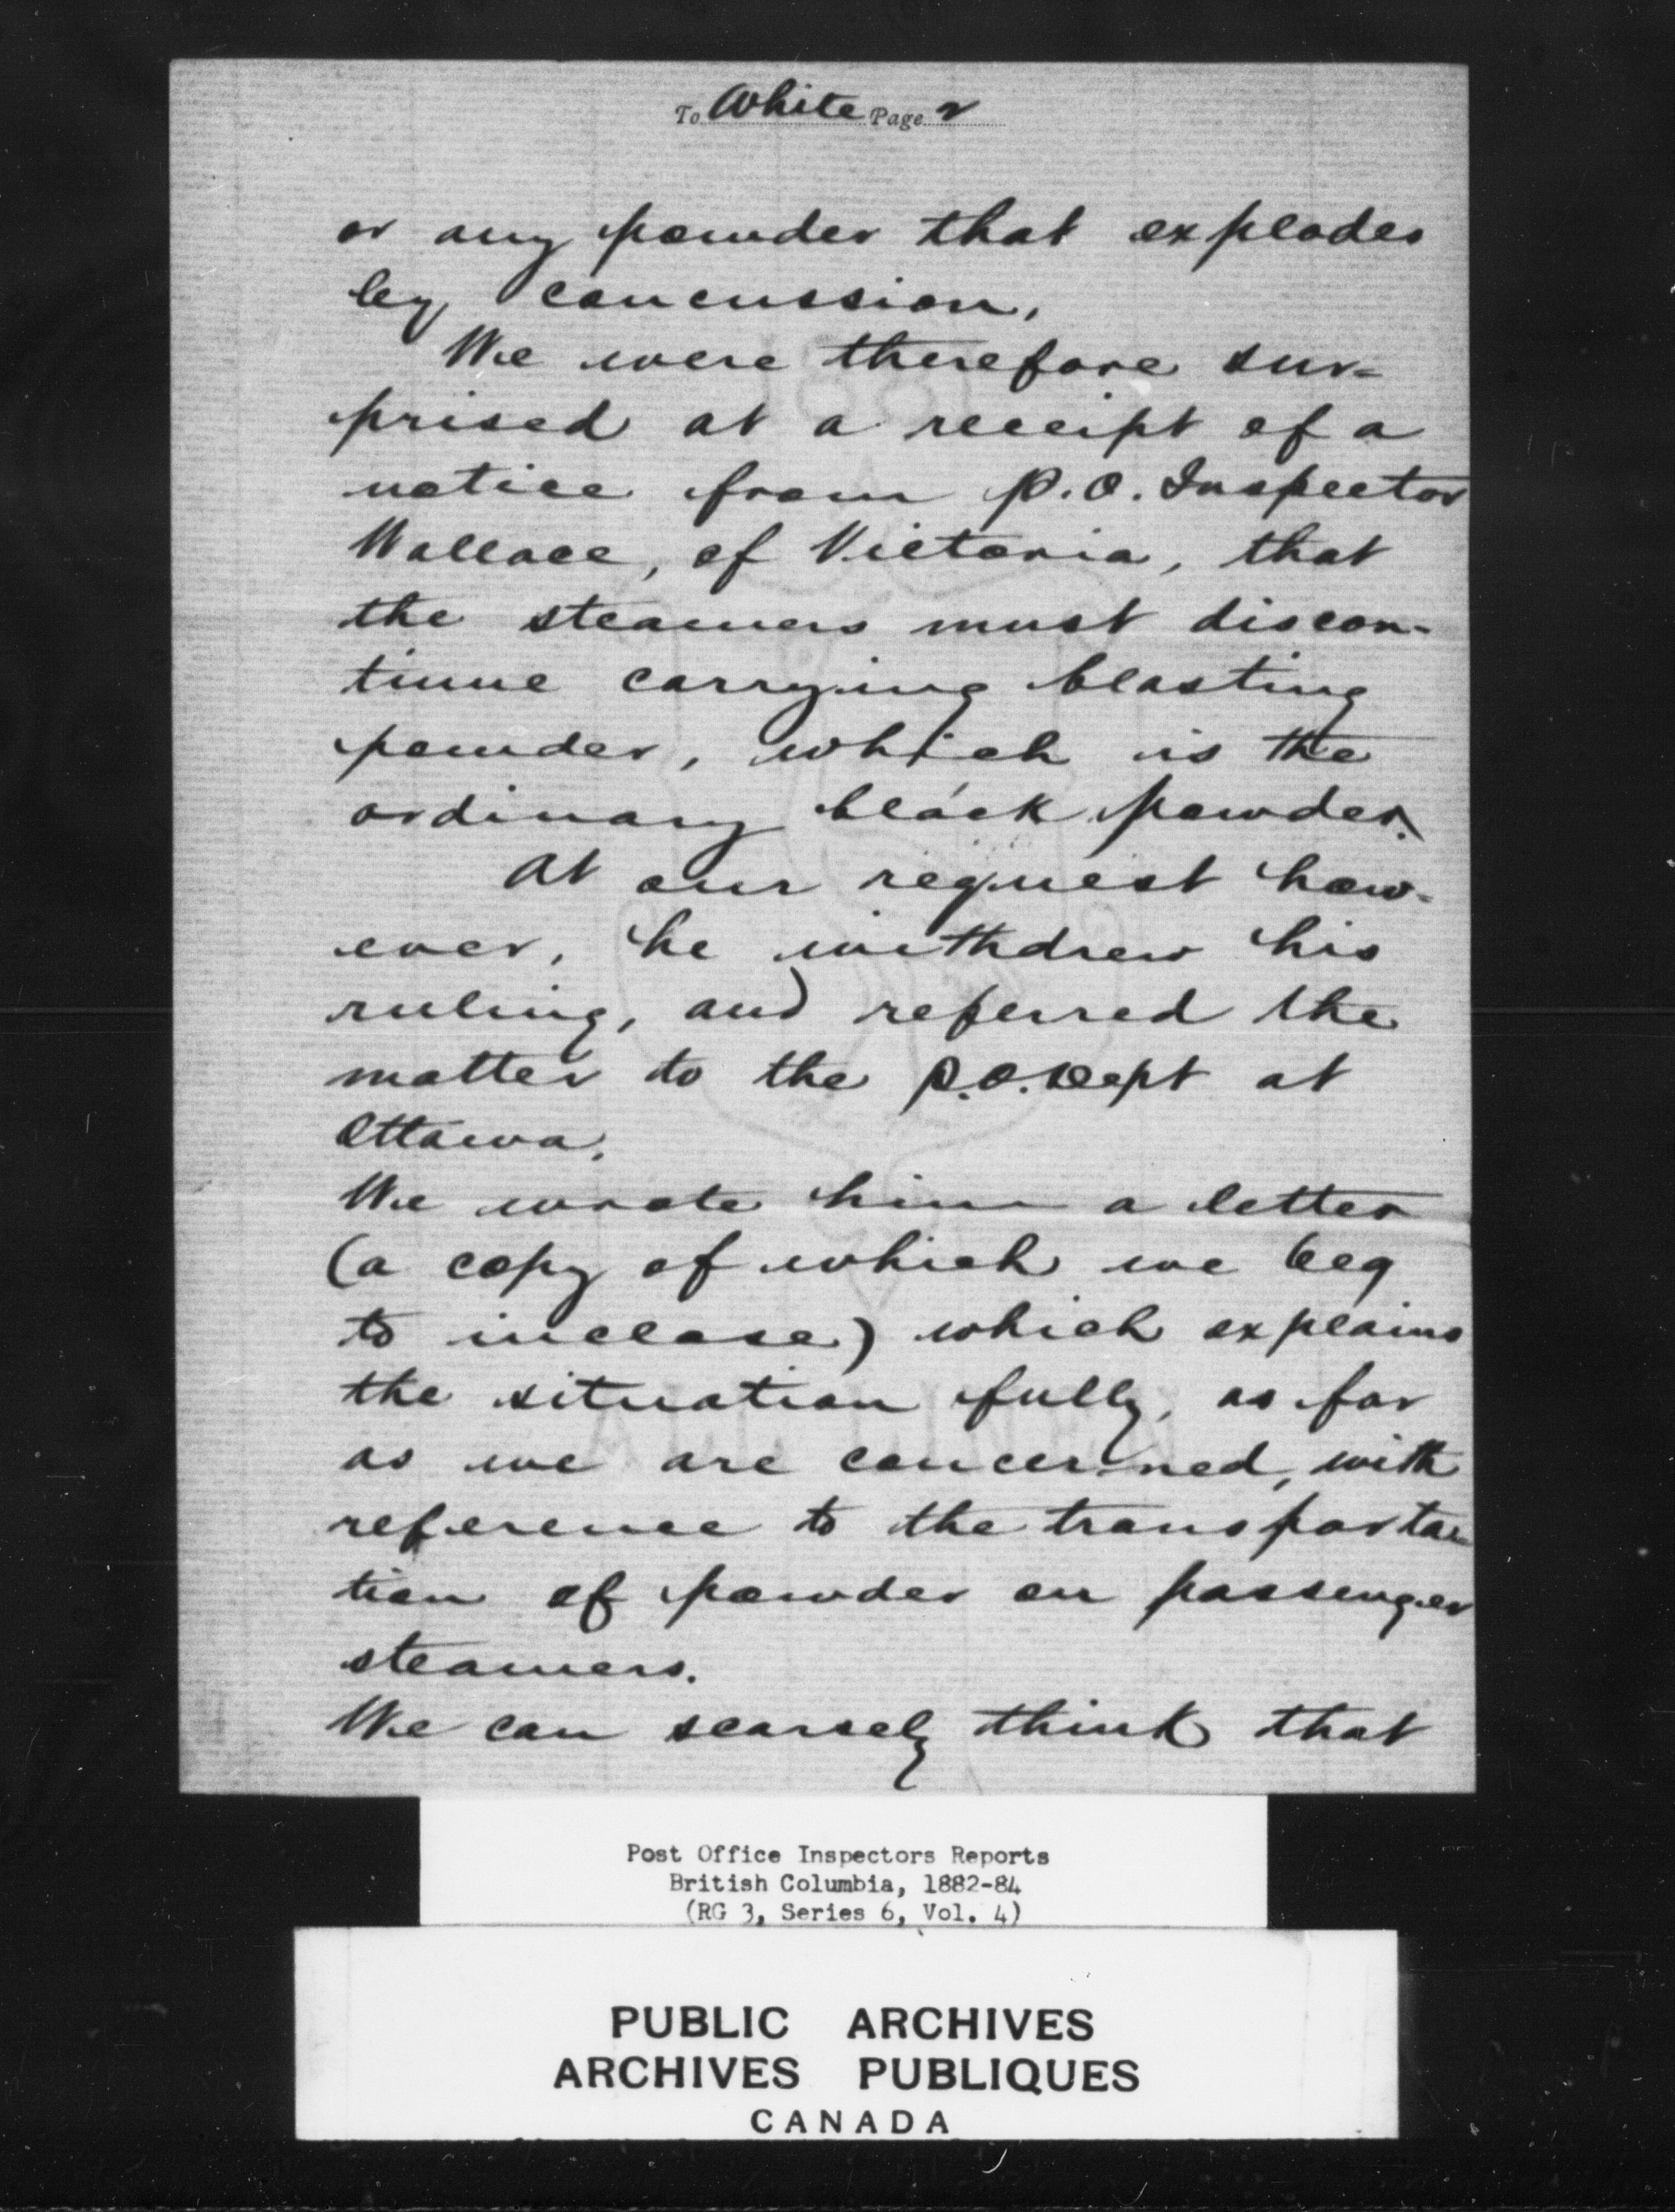 To White Page 2
or any powder that explodes
by concussion.
We were therefore sur=
prised at a receipt of a
notice from P.O. Inspector
Wallace, of Victoria, that
the steamers must discon-
tinue carrying blasting
powder, which is the
ordinary black powder.
At our request how-
ever, he withdrew his
ruling, and referred the
matter to the P.O. Dept at
Ottawa.
We wrote him a letter
(a copy of which we beg
to inclose) which explains
the situation fully, as far
as we are concerned, with
reference to the transporta-
tion of powder on passenger
steamers.
We can scarsely think that
Post Office Inspectors Reports
British Columbia, 1882-84
(RG 3, Series 6, Vol. 4)
PUBLIC ARCHIVES
ARCHIVES PUBLIQUES
CANADA